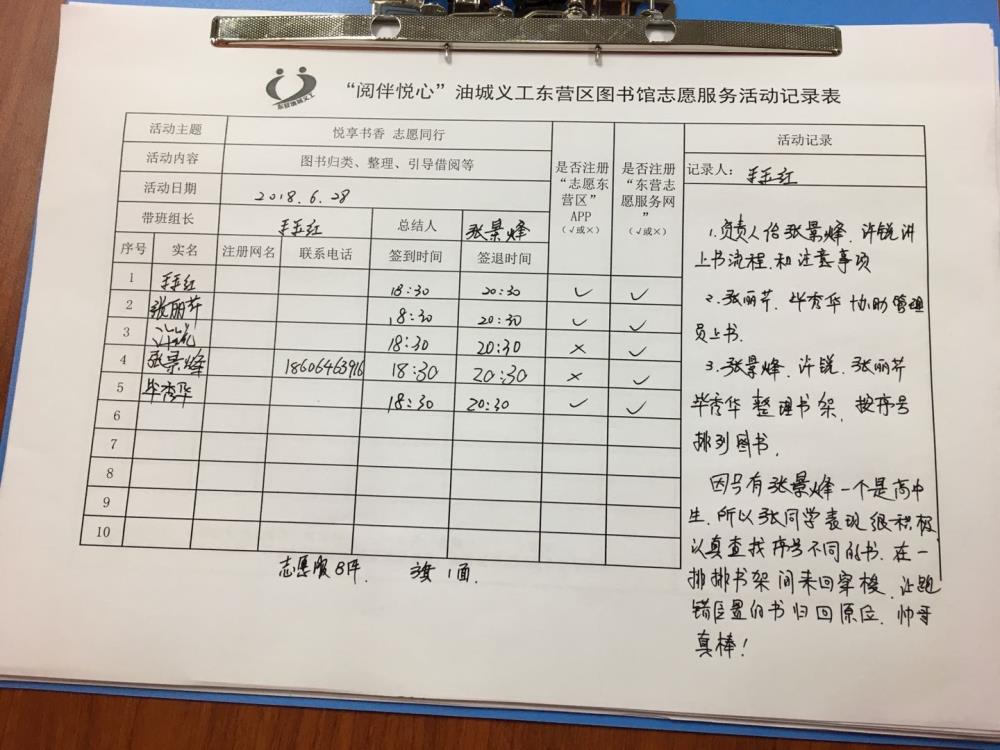 东营油城义工
“阅伴悦心”油城义工东营区图书馆志愿服务活动记录表
活动主题 悦享书香 志愿同行
活动内容 图书归类、整理、引导借阅等
活动日期 2018.6.28
带班组长 王玉红 总结人 张景烽
是否注册“志愿东营区”APP(√或×)
是否注册“东营志愿服务网”(√或×)
序号 实名 注册网名 联系电话 签到时间 签退时间
1 王玉红 18:30 20:30 √ √
2 张丽芹 18:30 20:30 √ √
3 许锐 18:30 20:30 × √
4 张景烽 18606463916 18:30 20:30 × √
5 毕秀华 18:30 20:30 √ √
6
7
8
9
10
志愿服8件. 旗1面.
活动记录
记录人: 王玉红
1.负责人给张景烽.许锐讲
上书流程.和注意事项
2.张丽芹.毕秀华协助管理
员上书.
3.张景烽.许锐.张丽芹
毕秀华整理书架.按序号
排列图书.
因只有张景烽一个是高中
生.所以张同学表现很积极
认真查找序号不同的书.在一
排排书架间来回穿梭.让跑
错位置的书归回原位.帅哥
真棒!